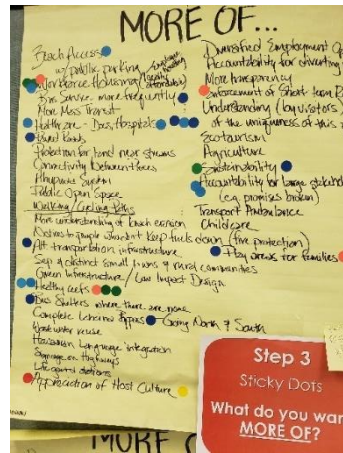 MORE OF...
Beach Access
w/ public parking
Workforce Housing
Bus Service more frequently
More Mass Transit
Healthcare - Docs, Hospitals
Protection for land near streams
Connectivity Between
System
Public Open Space
Walking/Cycling Paths
More understanding of beach erosion
(fire protection)
Alt transportation infrastructure
Sep of distinct small towns & rural communities
Green Infrastructure / Low Impact Design
Healthy reefs
Bus Shelters where there are none
Complete Lahaina Bypass Going North & South
Waste water reuse
Hawaiian Language integration
Signage on Highways
Lifeguard stations
Appreciation of Host Culture
Diversified Employment
Accountability for diverting
More transparency
Enforcement of Short-term
Understanding (by visitors)
of the uniqueness of this
Ecotourism
Agriculture
Sustainability
Accountability for large
(e.g. promises broken)
Transport Ambulance
Childcare
Play areas for families
Step 3
Sticky Dots
What do you
MORE OF?
MORE